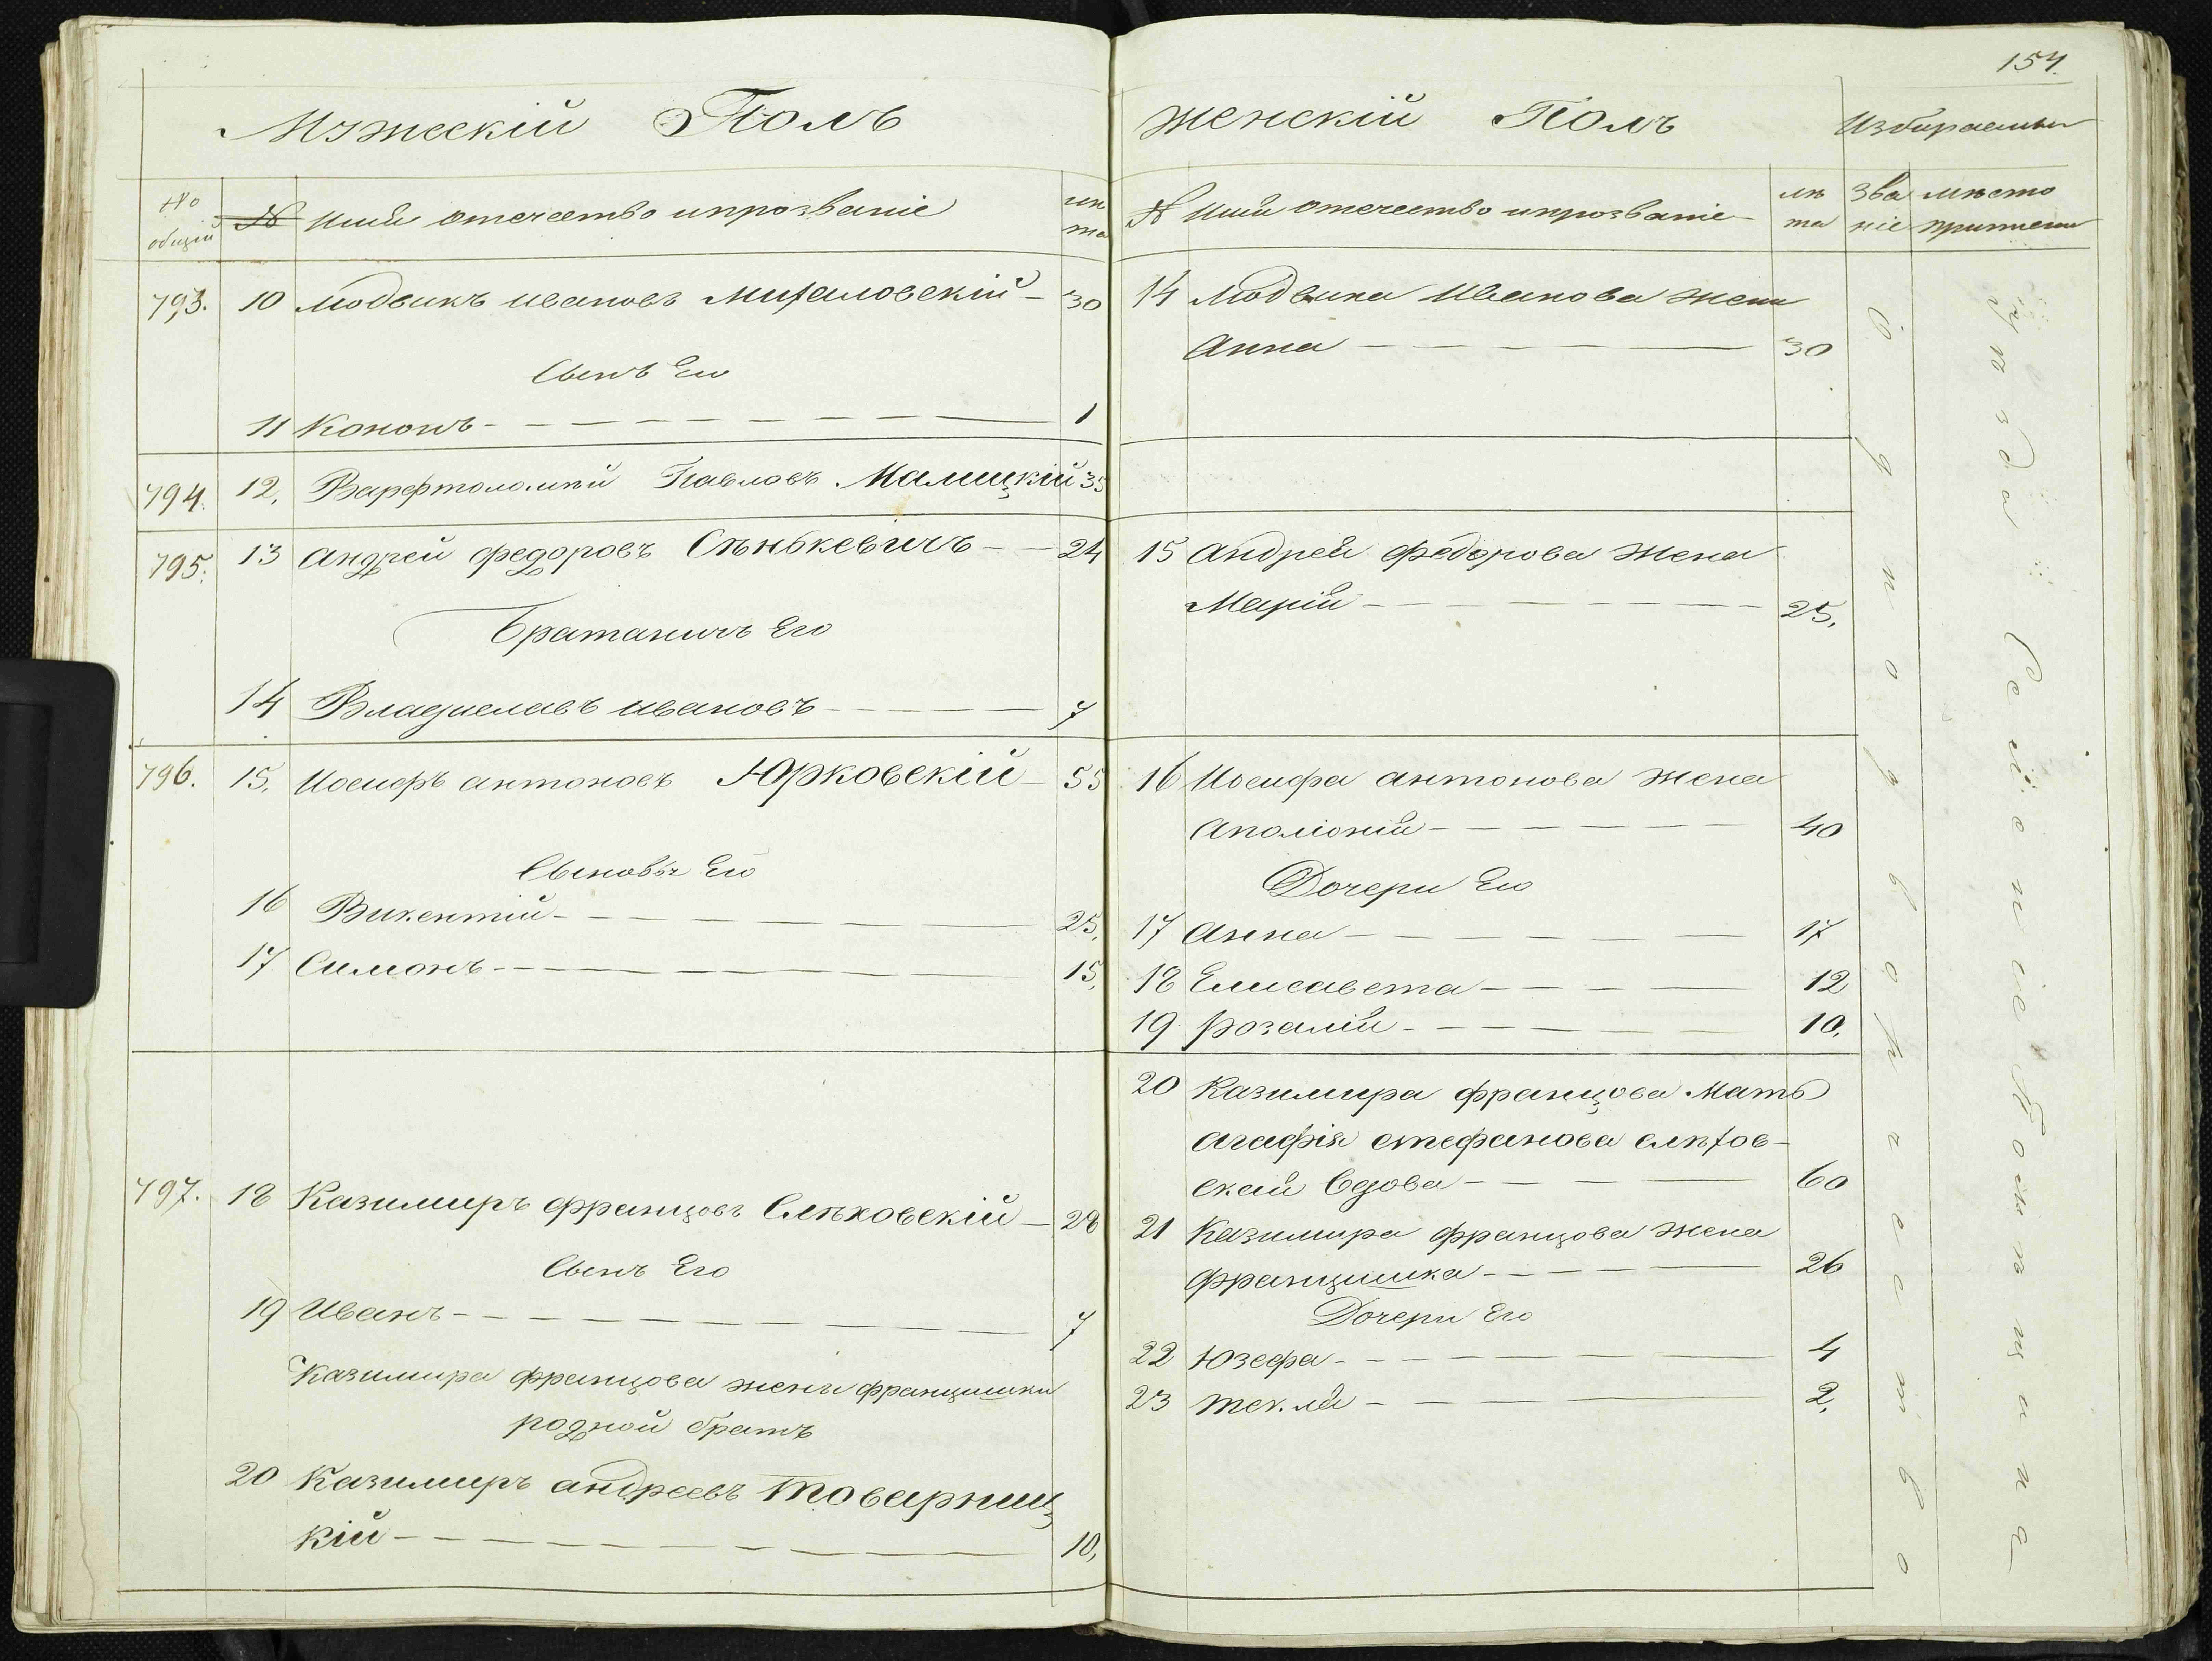 154.
Мужескій Полъ
No общій
№ Имя отечество ипрозваніе лѣта
793. 10 Людвикъ Ивановъ Михаловскій - 30
Сынъ Его
11 Кононъ - 1
794. 12, Варфтоломѣй Павловъ Малицкій 35
795. 13 Андрей Федоровъ Сѣнькевичъ - 24
Братаничъ Его
14 Владиславъ Ивановъ - 7
796. 15, Иосифъ Антоновъ Юрковскій - 55
Сыновья Его
16 Викентій - 25,
17 Симонъ - 15,
797. 18 Казимиръ Францовъ Слѣховскій - 28
Сынъ Его
19 Иванъ - 7
Казимира Францова жены Францишки
родной братъ
20 Казимиръ Андреевъ Товарниц
кій - 10,
Женскій Полъ
Избираемы
№ Имя отечество ипрозваніе лѣта
Званіе
мѣсто приписки
14 Людвика Иванова жена
Анна - 30
15 Андрея Федорова Жена
Марія - 25,
16 Иосифа Антонова Жена
Аполіонія - 40
Дочери Его
17 Анна - 17
18 Елисавета - 12
19 Розалія - 10,
20 Казимира Францова Мать
Агафія Стефанова Слѣхов-
ская Вдова - 60
21 Казимира Францова Жена
Францишка - 26
Дочери Его
22 Юзефа - 4
23 Текля - 2,
Одnодворчество
уѣзда Селеніе